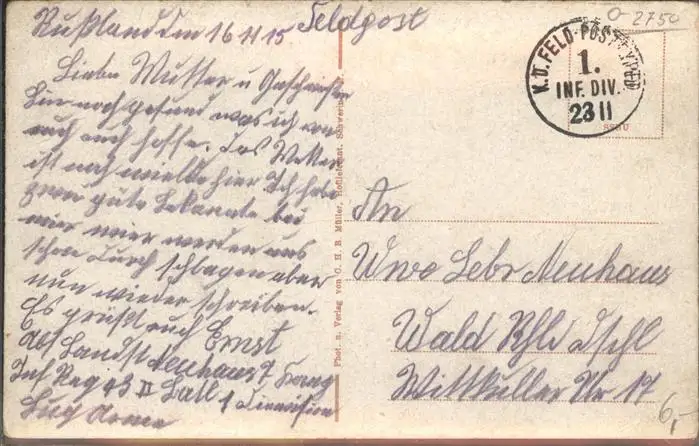 Rußland den 16 11 15 Feldpost
Liebe Mutter u Geschwister
Bin noch gesund was ich von
euch auch hoffe. Das Wetter
ist noch milde hier Ich habe
zwei gute Bekannte bei
mir wir werden uns
schon durch schlagen aber
nun wieder schreiben.
Es grüßt euch Ernst
Abs Landst Neuhaus 7 Komp
Inf Reg 43 II Batl 1 Division
Phot. u. Verlag von C. H. B Müller, Hoflieferant, Schwerin
O 2750
K.D. FELD-POST
1.
INF. DIV.
23 11
An
Wwe Lebr Neuhaus
Wald Rhl Dschl
Wittkuller Nr 17
6,-